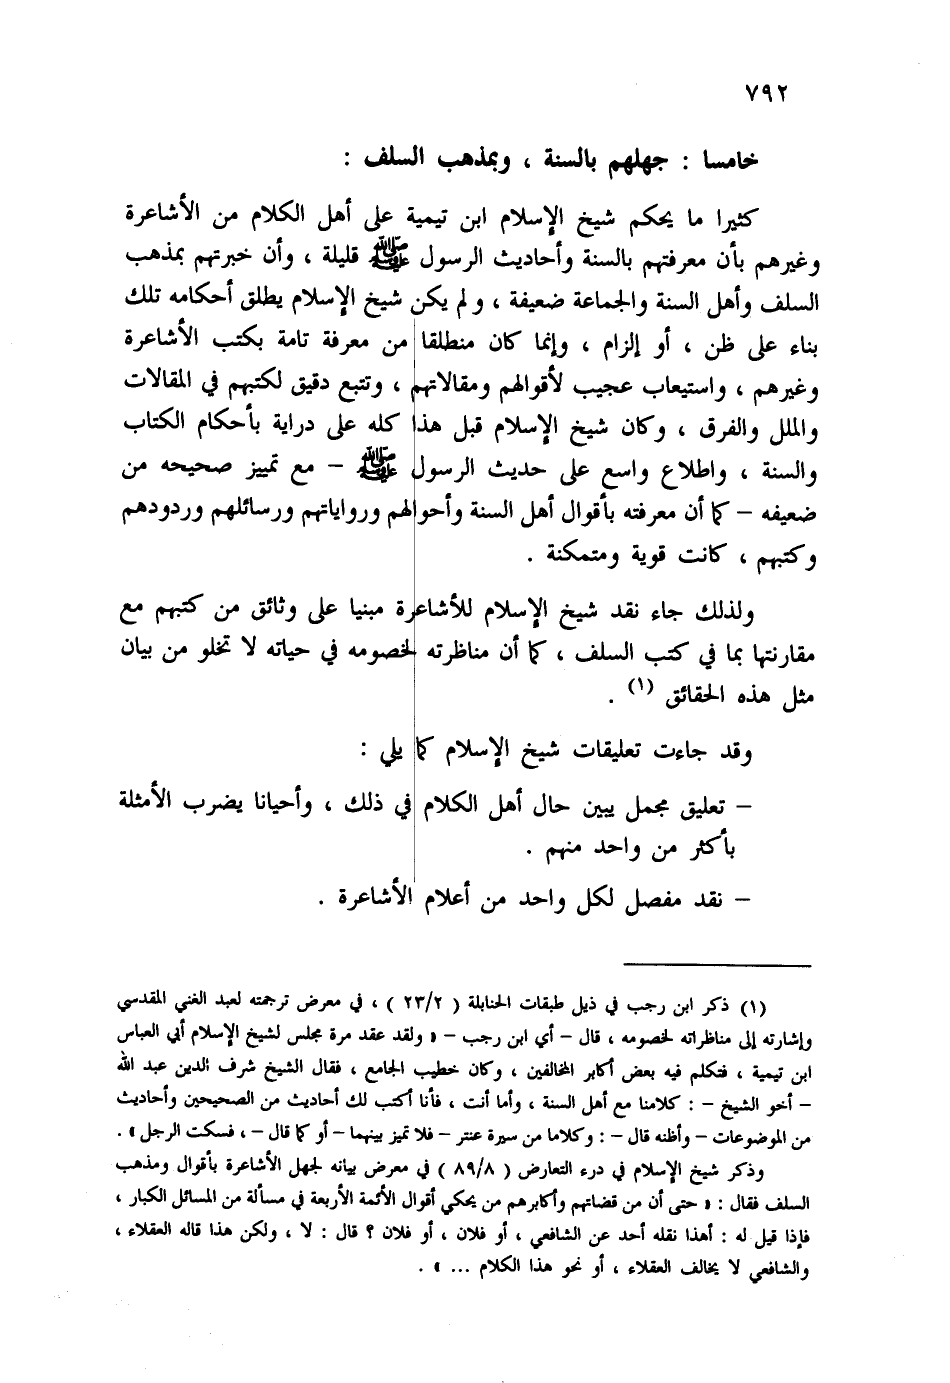 ٧٩٢
خامسا : جهلهم بالسنة ، وبمذهب السلف :
كثيرا ما يحكم شيخ الإسلام ابن تيمية على أهل الكلام من الأشاعرة
وغيرهم بأن معرفتهم بالسنة وأحاديث الرسول ﷺ قليلة ، وأن خبرتهم بمذهب
السلف وأهل السنة والجماعة ضعيفة ، ولم يكن شيخ الإسلام يطلق أحكامه تلك
بناء على ظن ، أو إلزام ، وإنما كان منطلقا من معرفة تامة بكتب الأشاعرة
وغيرهم ، واستيعاب عجيب لأقوالهم ومقالاتهم ، وتتبع دقيق لكتبهم في المقالات
والملل والفرق ، وكان شيخ الإسلام قبل هذا كله على دراية بأحكام الكتاب
والسنة ، واطلاع واسع على حديث الرسول ﷺ – مع تمييز صحيحه من
ضعيفه – كما أن معرفته بأقوال أهل السنة وأحوالهم ورواياتهم ورسائلهم وردودهم
وكتبهم ، كانت قوية ومتمكنة .
ولذلك جاء نقد شيخ الإسلام للأشاعرة مبنيا على وثائق من كتبهم مع
مقارنتها بما في كتب السلف ، كما أن مناظرته لخصومه في حياته لا تخلو من بيان
مثل هذه الحقائق (١) .
وقد جاءت تعليقات شيخ الإسلام كما يلي :
– تعليق مجمل يبين حال أهل الكلام في ذلك ، وأحيانا يضرب الأمثلة
بأكثر من واحد منهم .
– نقد مفصل لكل واحد من أعلام الأشاعرة .
(١) ذكر ابن رجب في ذيل طبقات الحنابلة ( ٢٣/٢ ) ، في معرض ترجمته لعبد الغني المقدسي
وإشارته إلى مناظراته لخصومه ، قال – أي ابن رجب – « ولقد عقد مرة مجلس لشيخ الإسلام أبي العباس
ابن تيمية ، فتكلم فيه بعض أكابر المخالفين ، وكان خطيب الجامع ، فقال الشيخ شرف الدين عبد الله
– أخو الشيخ – : كلامنا مع أهل السنة ، وأما أنت ، فأنا أكتب لك أحاديث من الصحيحين وأحاديث
من الموضوعات – وأظنه قال – : وكلاما من سيرة عنتر – فلا تميز بينهما – أو كما قال – ، فسكت الرجل » .
وذكر شيخ الإسلام في درء التعارض ( ٨٩/٨ ) في معرض بيانه لجهل الأشاعرة بأقوال ومذهب
السلف فقال : « حتى أن من قضاتهم وأكابرهم من يحكي أقوال الأئمة الأربعة في مسألة من المسائل الكبار ،
فإذا قيل له : أهذا نقله أحد عن الشافعي ، أو فلان ، أو فلان ؟ قال : لا ، ولكن هذا قاله العقلاء ،
والشافعي لا يخالف العقلاء ، أو نحو هذا الكلام ... » .